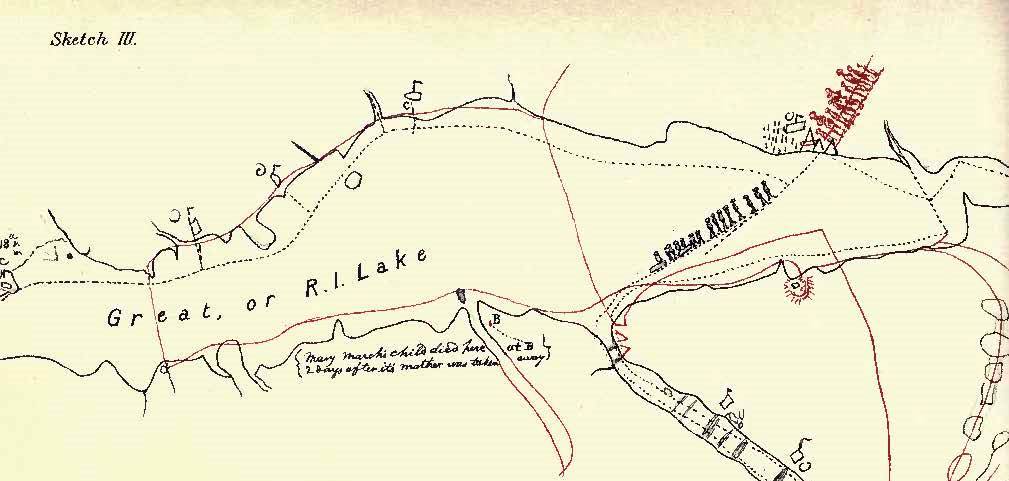 Sketch III.
Great, or R.I. Lake
B
Mary March's child died here at B
2 days after its mother was taken away